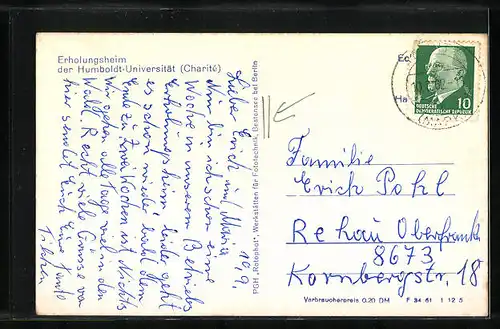 Erholungsheim
der Humboldt-Universität (Charité)
10/9.
Liebe Erich und Maria
Nun bin ich schon eine
Woche in unserem Betriebs
Erholungsheim leider geht
es schon wieder bald dem
Ende zu zwei Wochen ist Nichts
Wir gehen alle Tage viel in den
Wald. Recht viele Grüsse von
hier sendet Euch Eure Tante
PGH „Rotophot", Werkstätten für Fototechnik, Bestensee bei Berlin
DEUTSCHE
DEMOKRATISCHE REPUBLIK
10
Familie
Erich Pohl
Rehau Oberfranken
8673
Kornbergstr. 18
Verbraucherpreis 0.20 DM F 34 61 1 12 5